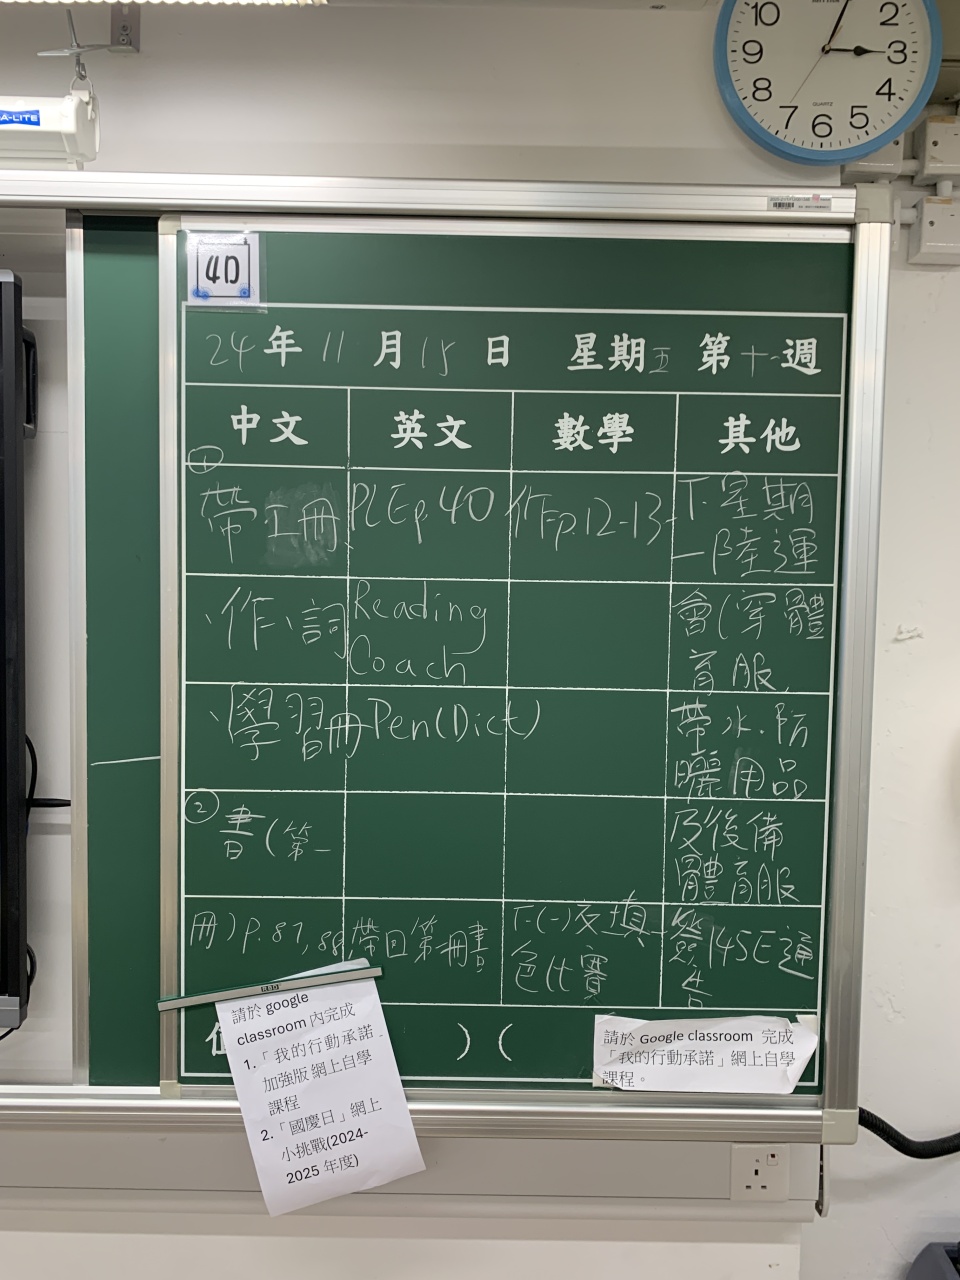 10
2
9
3
8
4
7
6
5
QUARTZ
A-LITE
4D
24年 11月 15日 星期五 第十一週
中文 英文 數學 其他
①
帶工冊
、作、詞
、學習冊
②
書(第一
冊) p.87, 88
PLE p.40
Reading
Coach
Pen(Dict)
帶回第一冊書
作 p.12-13
下(一)交填
色比賽
下星期
一陸運
會(穿體
育服
帶水.防
曬用品
及後備
體育服
簽145E通
告
)(
請於 google
classroom 內完成
1.「我的行動承諾」
加強版 網上自學
課程
2.「國慶日」網上
小挑戰(2024-
2025 年度)
請於 Google classroom 完成
「我的行動承諾」網上自學
課程。